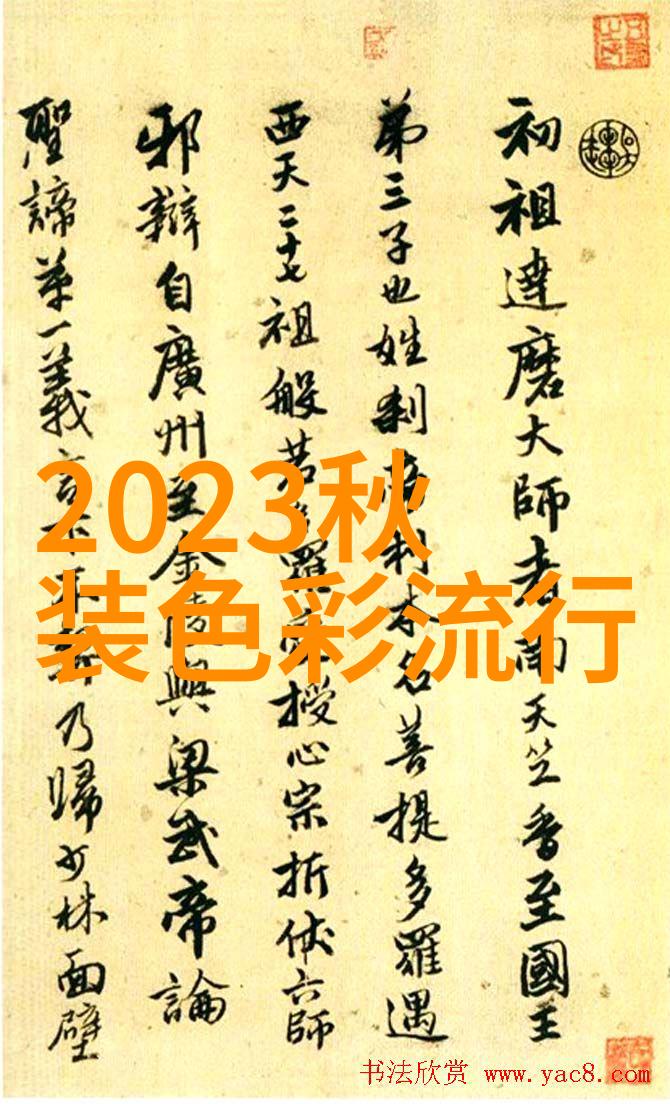 初祖達磨大師者南天竺香至國王
第三子也姓刹帝利本名菩提多羅遇
西天二十七祖般若多羅密授心宗折伏六師
邪辯自廣州至金陵與梁武帝論
聖諦第一義言下不契乃歸少林面壁
2023秋
装色彩流行
书法欣赏 www.yac8.com